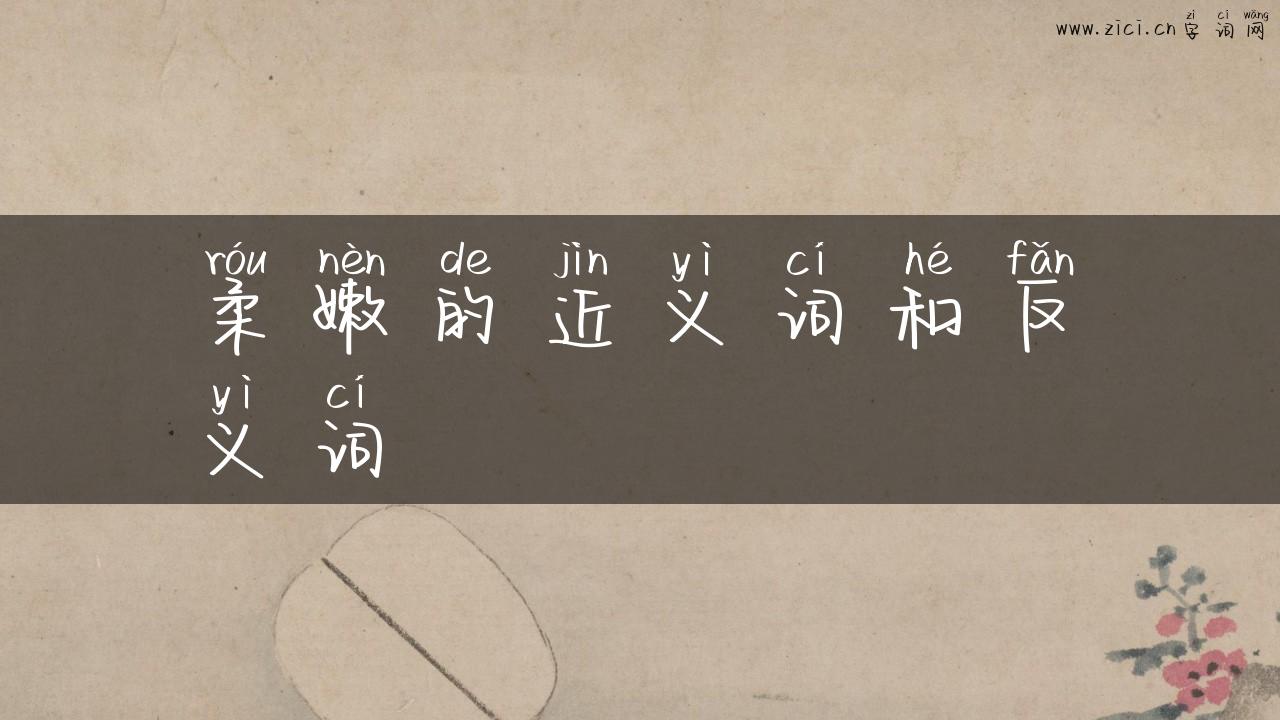 zì cí wǎng
www.zici.cn 字词网
róu nèn de jìn yì cí hé fǎn
柔嫩的近义词和反
yì cí
义词